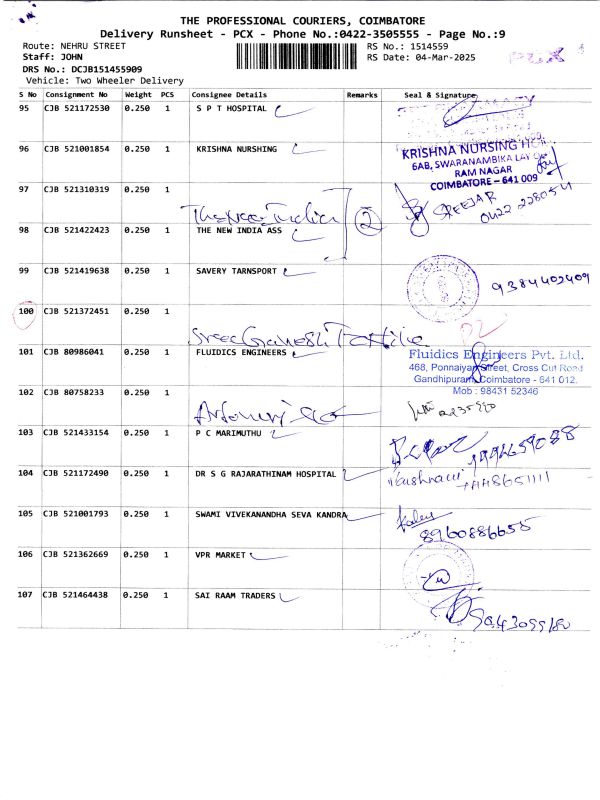 THE PROFESSIONAL COURIERS, COIMBATORE
Delivery Runsheet - PCX - Phone No.:0422-3505555 - Page No.:9
Route: NEHRU STREET RS No.: 1514559
Staff: JOHN RS Date: 04-Mar-2025 PCX
DRS No.: DCJB151455909
Vehicle: Two Wheeler Delivery
S No Consignment No Weight PCS Consignee Details Remarks Seal & Signature
95 CJB 521172530 0.250 1 S P T HOSPITAL
96 CJB 521001854 0.250 1 KRISHNA NURSHING
KRISHNA NURSING
6AB, SWARANAMBIKA LAY
RAM NAGAR
COIMBATORE – 641 009
97 CJB 521310319 0.250 1
SREEJAR
The New India 2
98 CJB 521422423 0.250 1 THE NEW INDIA ASS
99 CJB 521419638 0.250 1 SAVERY TARNSPORT
9384402409
100 CJB 521372451 0.250 1
Sree Ganesh Textile
101 CJB 80986041 0.250 1 FLUIDICS ENGINEERS
Fluidics Engineers Pvt. Ltd.
468, Ponnaiyan Street, Cross Cut Road
Gandhipuram, Coimbatore - 641 012.
Mob : 98431 52346
102 CJB 80758233 0.250 1
103 CJB 521433154 0.250 1 P C MARIMUTHU
104 CJB 521172490 0.250 1 DR S G RAJARATHINAM HOSPITAL
105 CJB 521001793 0.250 1 SWAMI VIVEKANANDHA SEVA KANDRA
8960886655
106 CJB 521362669 0.250 1 VPR MARKET
107 CJB 521464438 0.250 1 SAI RAAM TRADERS